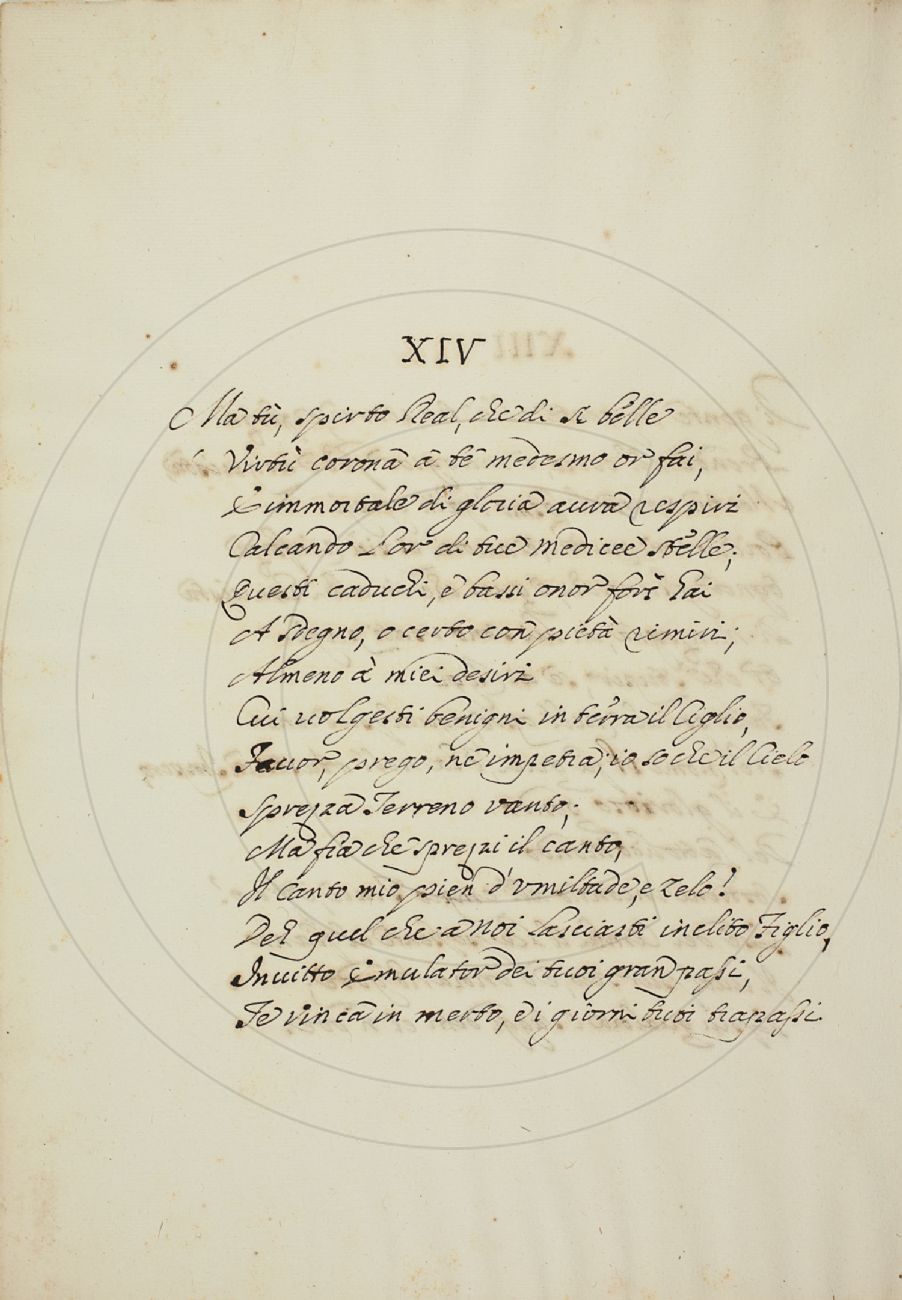 XIV
Ma tù, spirto Real, che di sì belle
Virtù corona à te medesmo or fai,
E immortale di gloria aura respiri
Calcando L'or di tue Medicee stelle;
Questi caduchi, e bassi onor fors' hai
A sdegno, o certo con pietà rimiri;
Almeno à miei desiri
Cui volgesti benigni in terra il Ciglio,
Favor, prego, ne impetra; io so che il Cielo
Sprezza Terreno vanto;
Ma fia che sprezzi il canto,
Il Canto mio pien d'umiltade, e zelo!
Deh quel che a Noi Lasciasti inclito Figlio,
Invitto Emulator dei tuoi gran passi,
Te vinca in merto, e i giorni tuoi trapassi